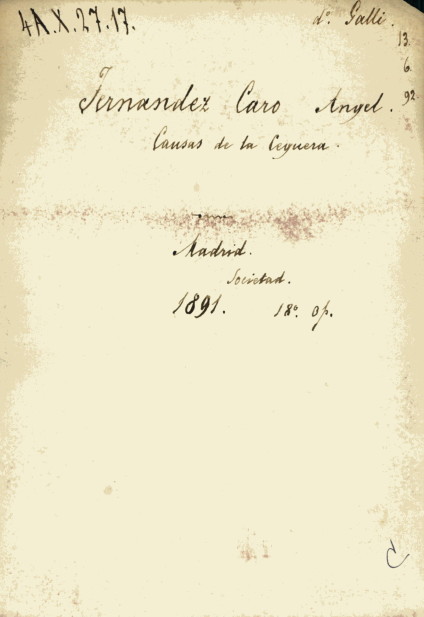 4A.X.27.17.
d.º Galli.
13
6
92
Fernandez Caro Angel.
Causas de la Ceguera.
Madrid.
Societad.
1891. 18º. op.
C